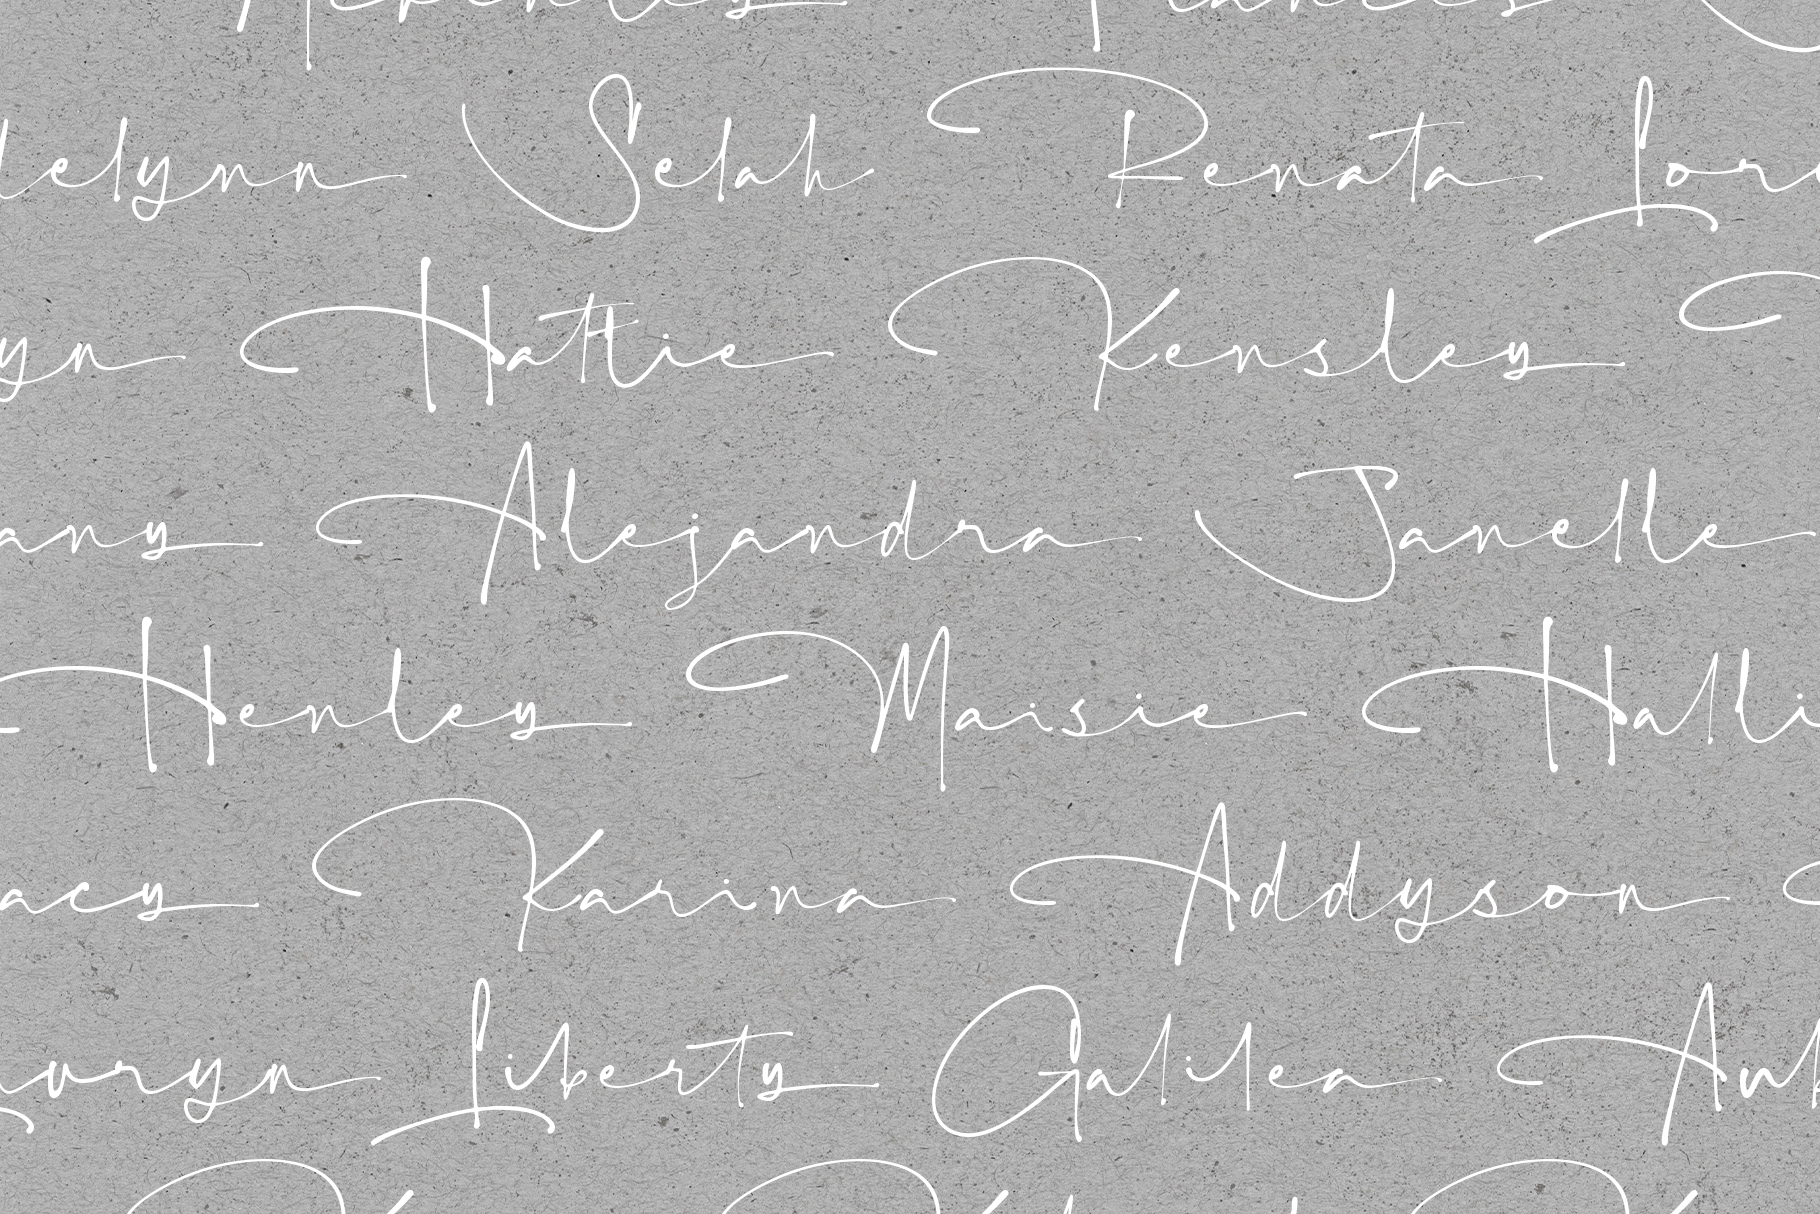 elynn Selah Renata Lor
yn Hattie Kensley
any Alejandra Janelle
Henley Maisie Halli
acy Karina Addyson
uryn Liberty Galilea Au